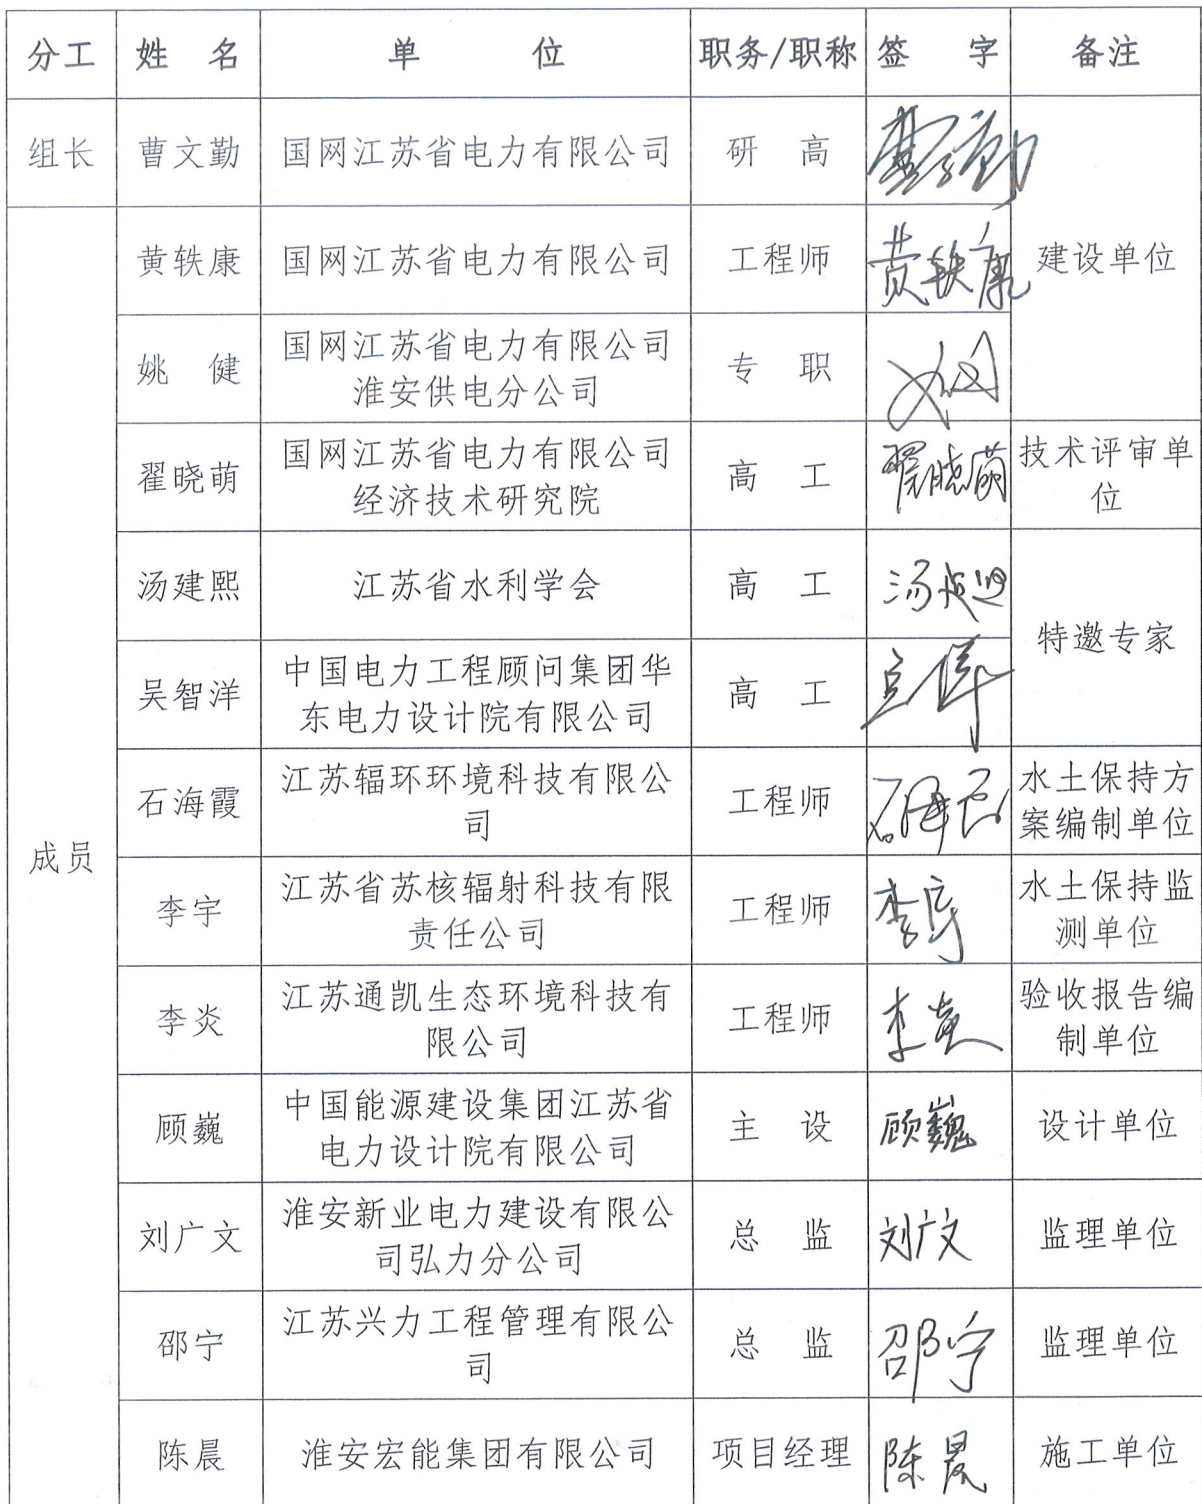 分工 姓 名 单 位 职务/职称 签 字 备注
组长 曹文勤 国网江苏省电力有限公司 研 高 曹文勤
黄轶康 国网江苏省电力有限公司 工程师 黄轶康 建设单位
姚 健 国网江苏省电力有限公司
淮安供电分公司
专 职
翟晓萌 国网江苏省电力有限公司
经济技术研究院
高 工 翟晓萌 技术评审单
位
汤建熙 江苏省水利学会 高 工 汤建熙
特邀专家
吴智洋 中国电力工程顾问集团华
东电力设计院有限公司
高 工
石海霞 江苏辐环环境科技有限公
司
工程师 石海霞 水土保持方
案编制单位
成员
李宇 江苏省苏核辐射科技有限
责任公司
工程师 李宇 水土保持监
测单位
李炎 江苏通凯生态环境科技有
限公司
工程师 李炎 验收报告编
制单位
顾巍 中国能源建设集团江苏省
电力设计院有限公司
主 设 顾巍 设计单位
刘广文 淮安新业电力建设有限公
司弘力分公司
总 监 刘广文 监理单位
邵宁 江苏兴力工程管理有限公
司
总 监 邵宁 监理单位
陈晨 淮安宏能集团有限公司 项目经理 陈晨 施工单位